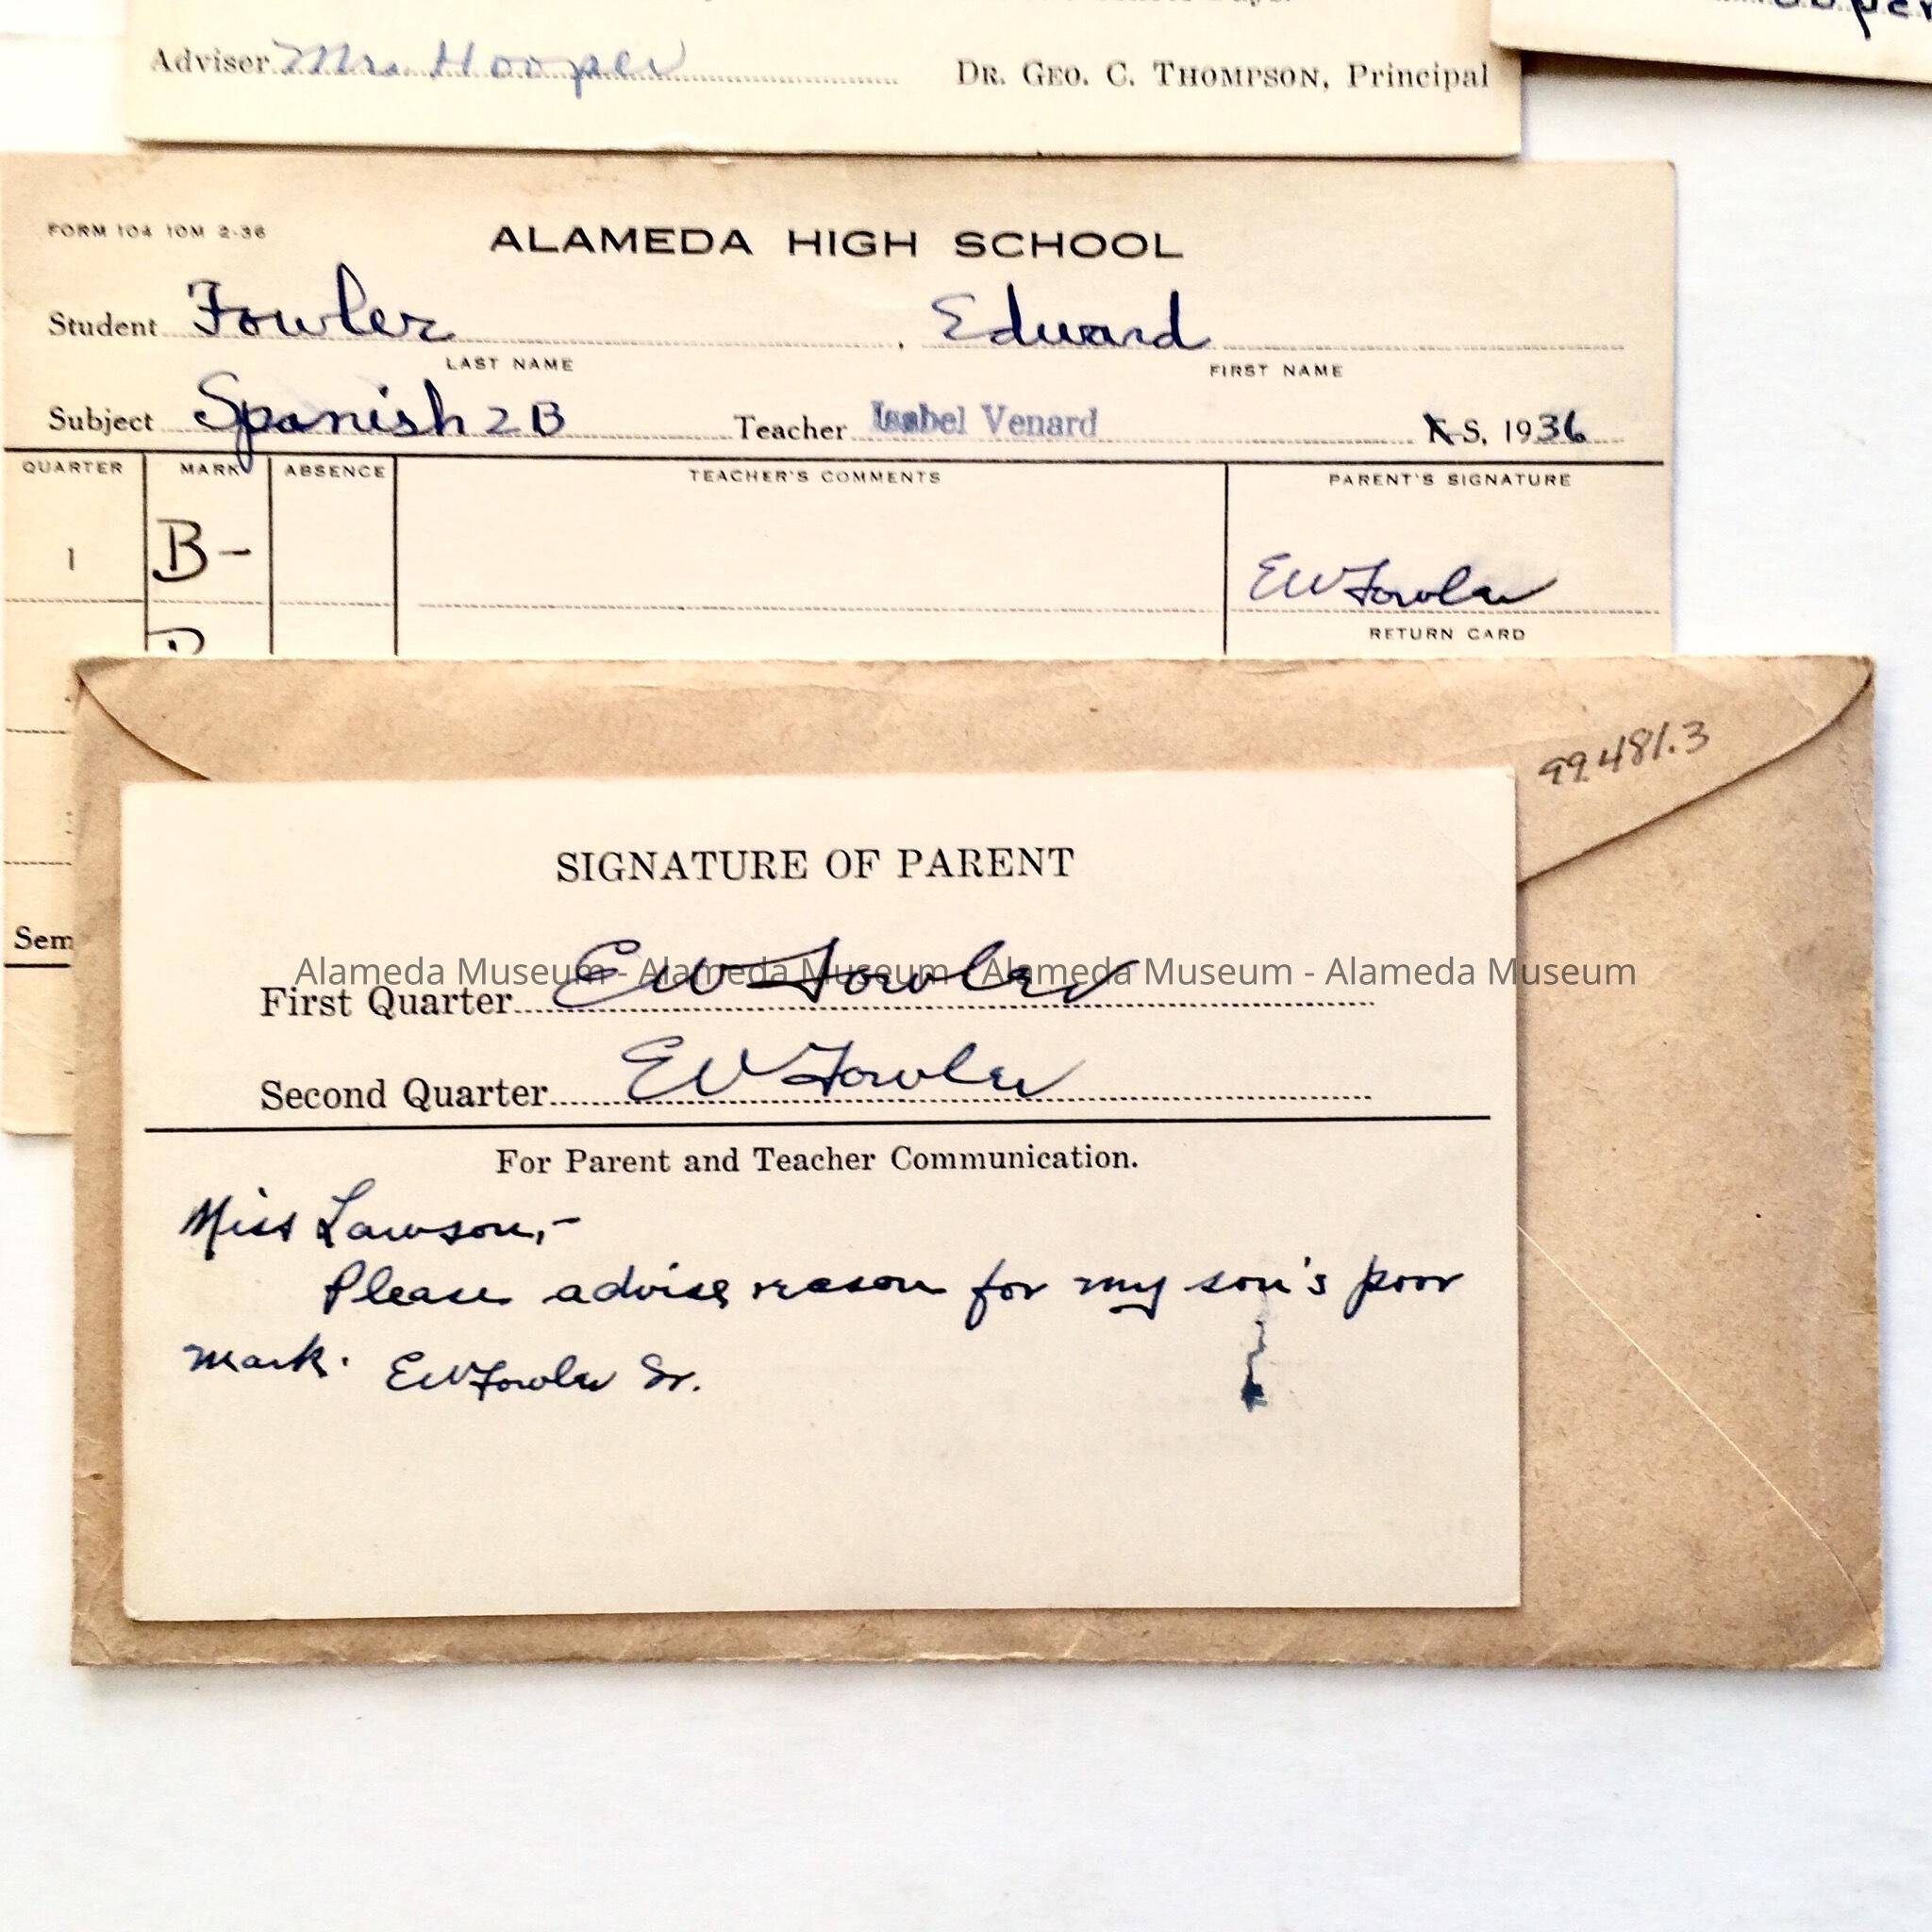 Adviser Mrs. Hooper DR. GEO. C. THOMPSON, Principal
FORM 104 10M 2-36
ALAMEDA HIGH SCHOOL
Student Fowler, Edward
LAST NAME FIRST NAME
Subject Spanish 2B Teacher Isabel Venard S, 1936
QUARTER MARK ABSENCE TEACHER'S COMMENTS PARENT'S SIGNATURE
1 B- EW Fowler
RETURN CARD
99.481.3
Sem
SIGNATURE OF PARENT
Alameda Museum - Alameda Museum - Alameda Museum - Alameda Museum
First Quarter EW Fowler
Second Quarter EW Fowler
For Parent and Teacher Communication.
Miss Lawson,-
Please advise reason for my son's poor
mark. EW Fowler Sr.